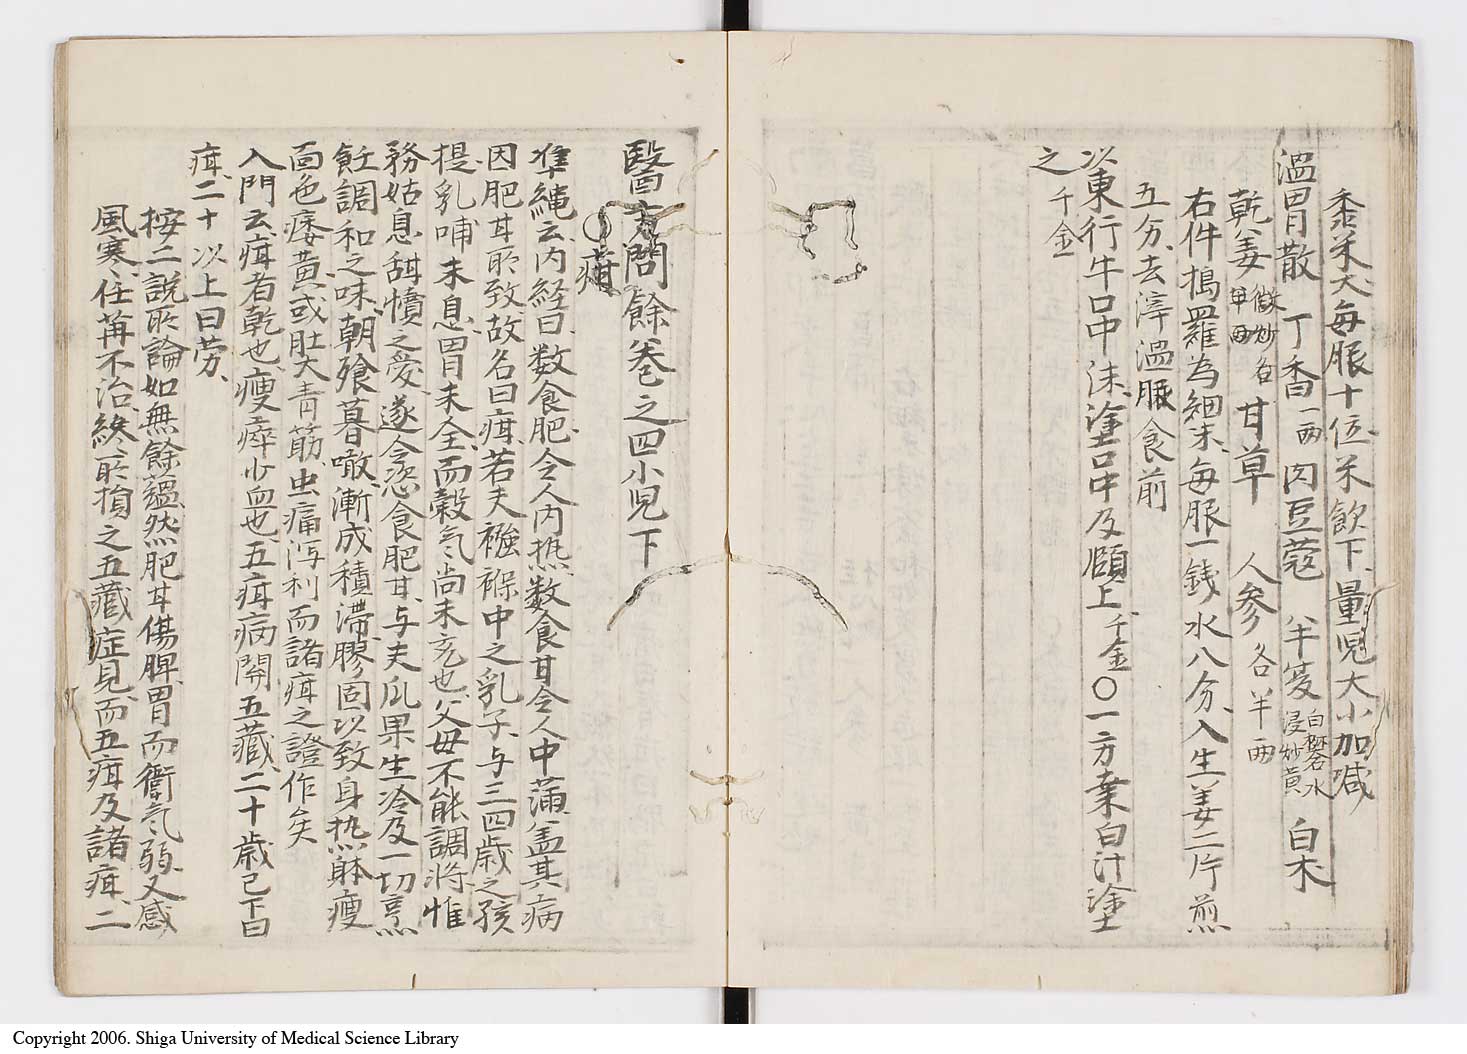 黍米大每服十位米飲下量兒大小加減
溫胃散 丁香一兩 肉豆蔻 半夏白礬水浸炒黃 白朮
乾姜微炒各 甘草 人參各半兩
右件搗羅為細末每服一錢水八分入生姜二片煎
五分去滓溫服食前
以東行牛口中沫塗口中及頤上千金○一方桒白汁塗
之千金
醫方問餘巻之四小兒下
疳
準繩云内経曰数食肥令人内热数食甘令人中蒲盖其病
因肥甘所致故名曰疳若夫襁褓中之乳子与三四歳之孩
提乳哺未息胃未全而穀气尚未充也父母不能調将惟
務姑息舐犢之愛遂令恣食肥甘与夫瓜果生冷及一切烹
飪調和之味朝飧暮噉漸成積滯膠固以致身热躰瘦
面色痿黄或肚大青筋虫痛泻利而諸疳之證作矣
入門云疳者乾也瘦瘁少血也五疳病関五藏二十歳已下曰
疳二十以上曰労
按二説所論如無餘蘊然肥甘傷脾胃而衞气弱又感
風寒任苒不治終所損之五藏症見而五疳及諸疳二